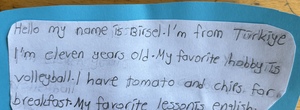 Hello my name is Birsel. I'm from Türkiye
I'm eleven years old. My favorite hobby Is
volleyball. I have tomato and chirs for
breakfast. My favorite lesson is english